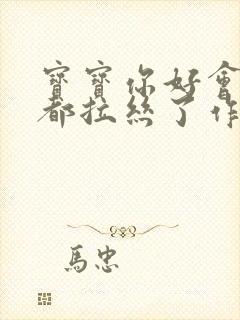 寶寶你好會
都拉絲了作
馬忠